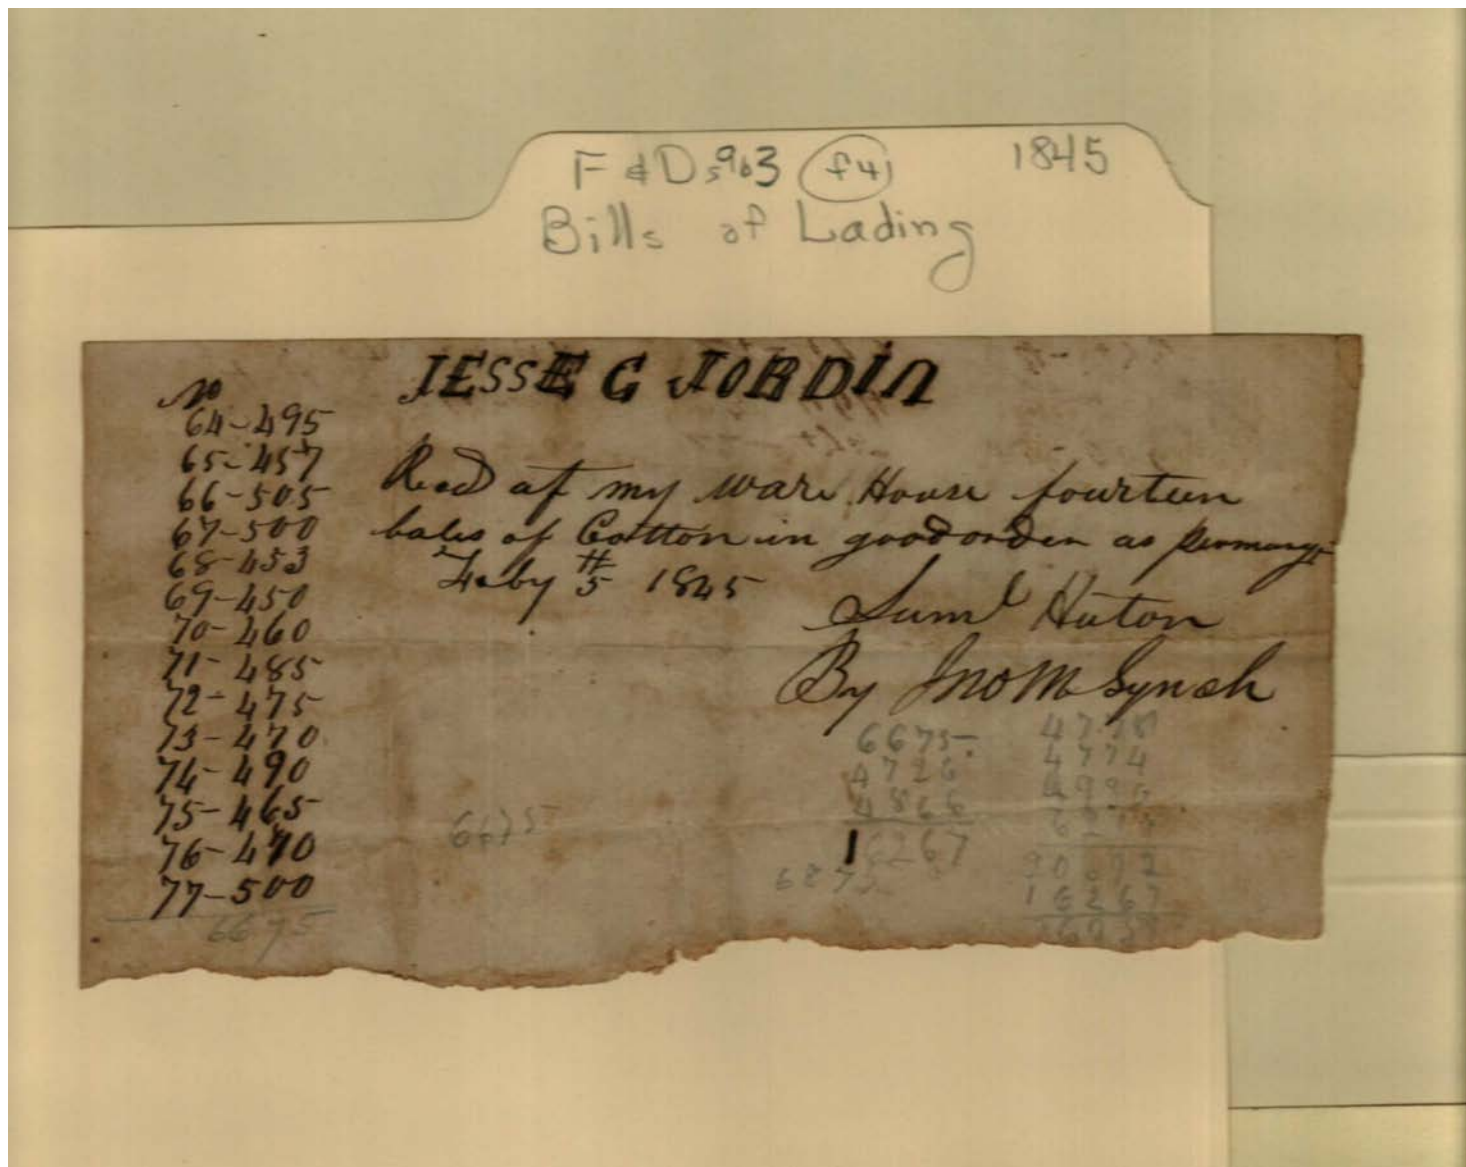 F & D 5963 f41 1845
Bills of Lading
JESSE G JORDIN
No
64-495
65-457
66-505
67-500
68-453
69-450
70-460
71-485
72-475
73-470
74-490
75-465
76-470
77-500
6675
Recd at my ware House fourteen
bales of Cotton in good orden as per marg
Feby 5 1845
Saml
By Jno M Lynch
6675
4726
4866
16267
6675
4774
16267